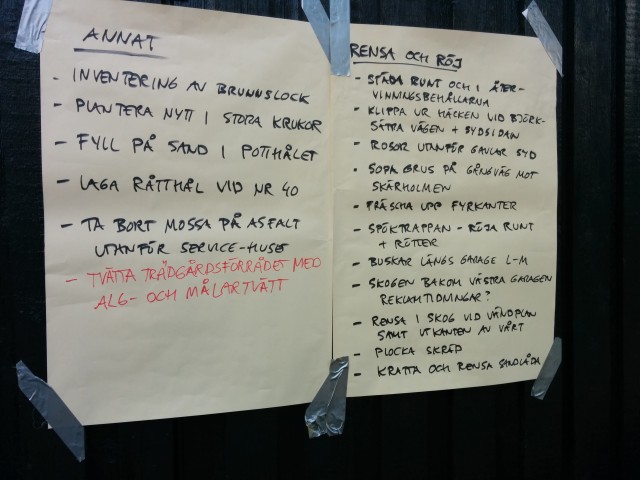 ANNAT
- INVENTERING AV BRUNNSLOCK
- PLANTERA NYTT I STORA KRUKOR
- FYLL PÅ SAND I POTTHÅLET
- LAGA RÅTTHÅL VID NR 40
- TA BORT MOSSA PÅ ASFALT
UTANFÖR SERVICE-HUSET
- TVÄTTA TRÄDGÅRDSFÖRRÅDET MED
ALG- OCH MÅLARTVÄTT
RENSA OCH RÖJ
- STÄDA RUNT OCH I ÅTER-
VINNINGSBEHÅLLARNA
- KLIPPA UR HÄCKEN VID BJÖRK-
SÄTRA VÄGEN + SYDSIDAN
- ROSOR UTANFÖR GAVLAR SYD
- SOPA GRUS PÅ GÅNGVÄG MOT
SKÄRHOLMEN
- FRÄSCHA UPP FYRKANTER
- SPÖKTRAPPAN - RÖJA RUNT
+ RÖTTER
- BUSKAR LÄNGS GARAGE L-M
- SKOGEN BAKOM VÄSTRA GARAGEN
REKLAMTIDNINGAR?
- RENSA I SKOG VID VÄNDPLAN
SAMT UTKANTEN AV VÅRT
- PLOCKA SKRÄP
- KRATTA OCH RENSA SANDLÅDA